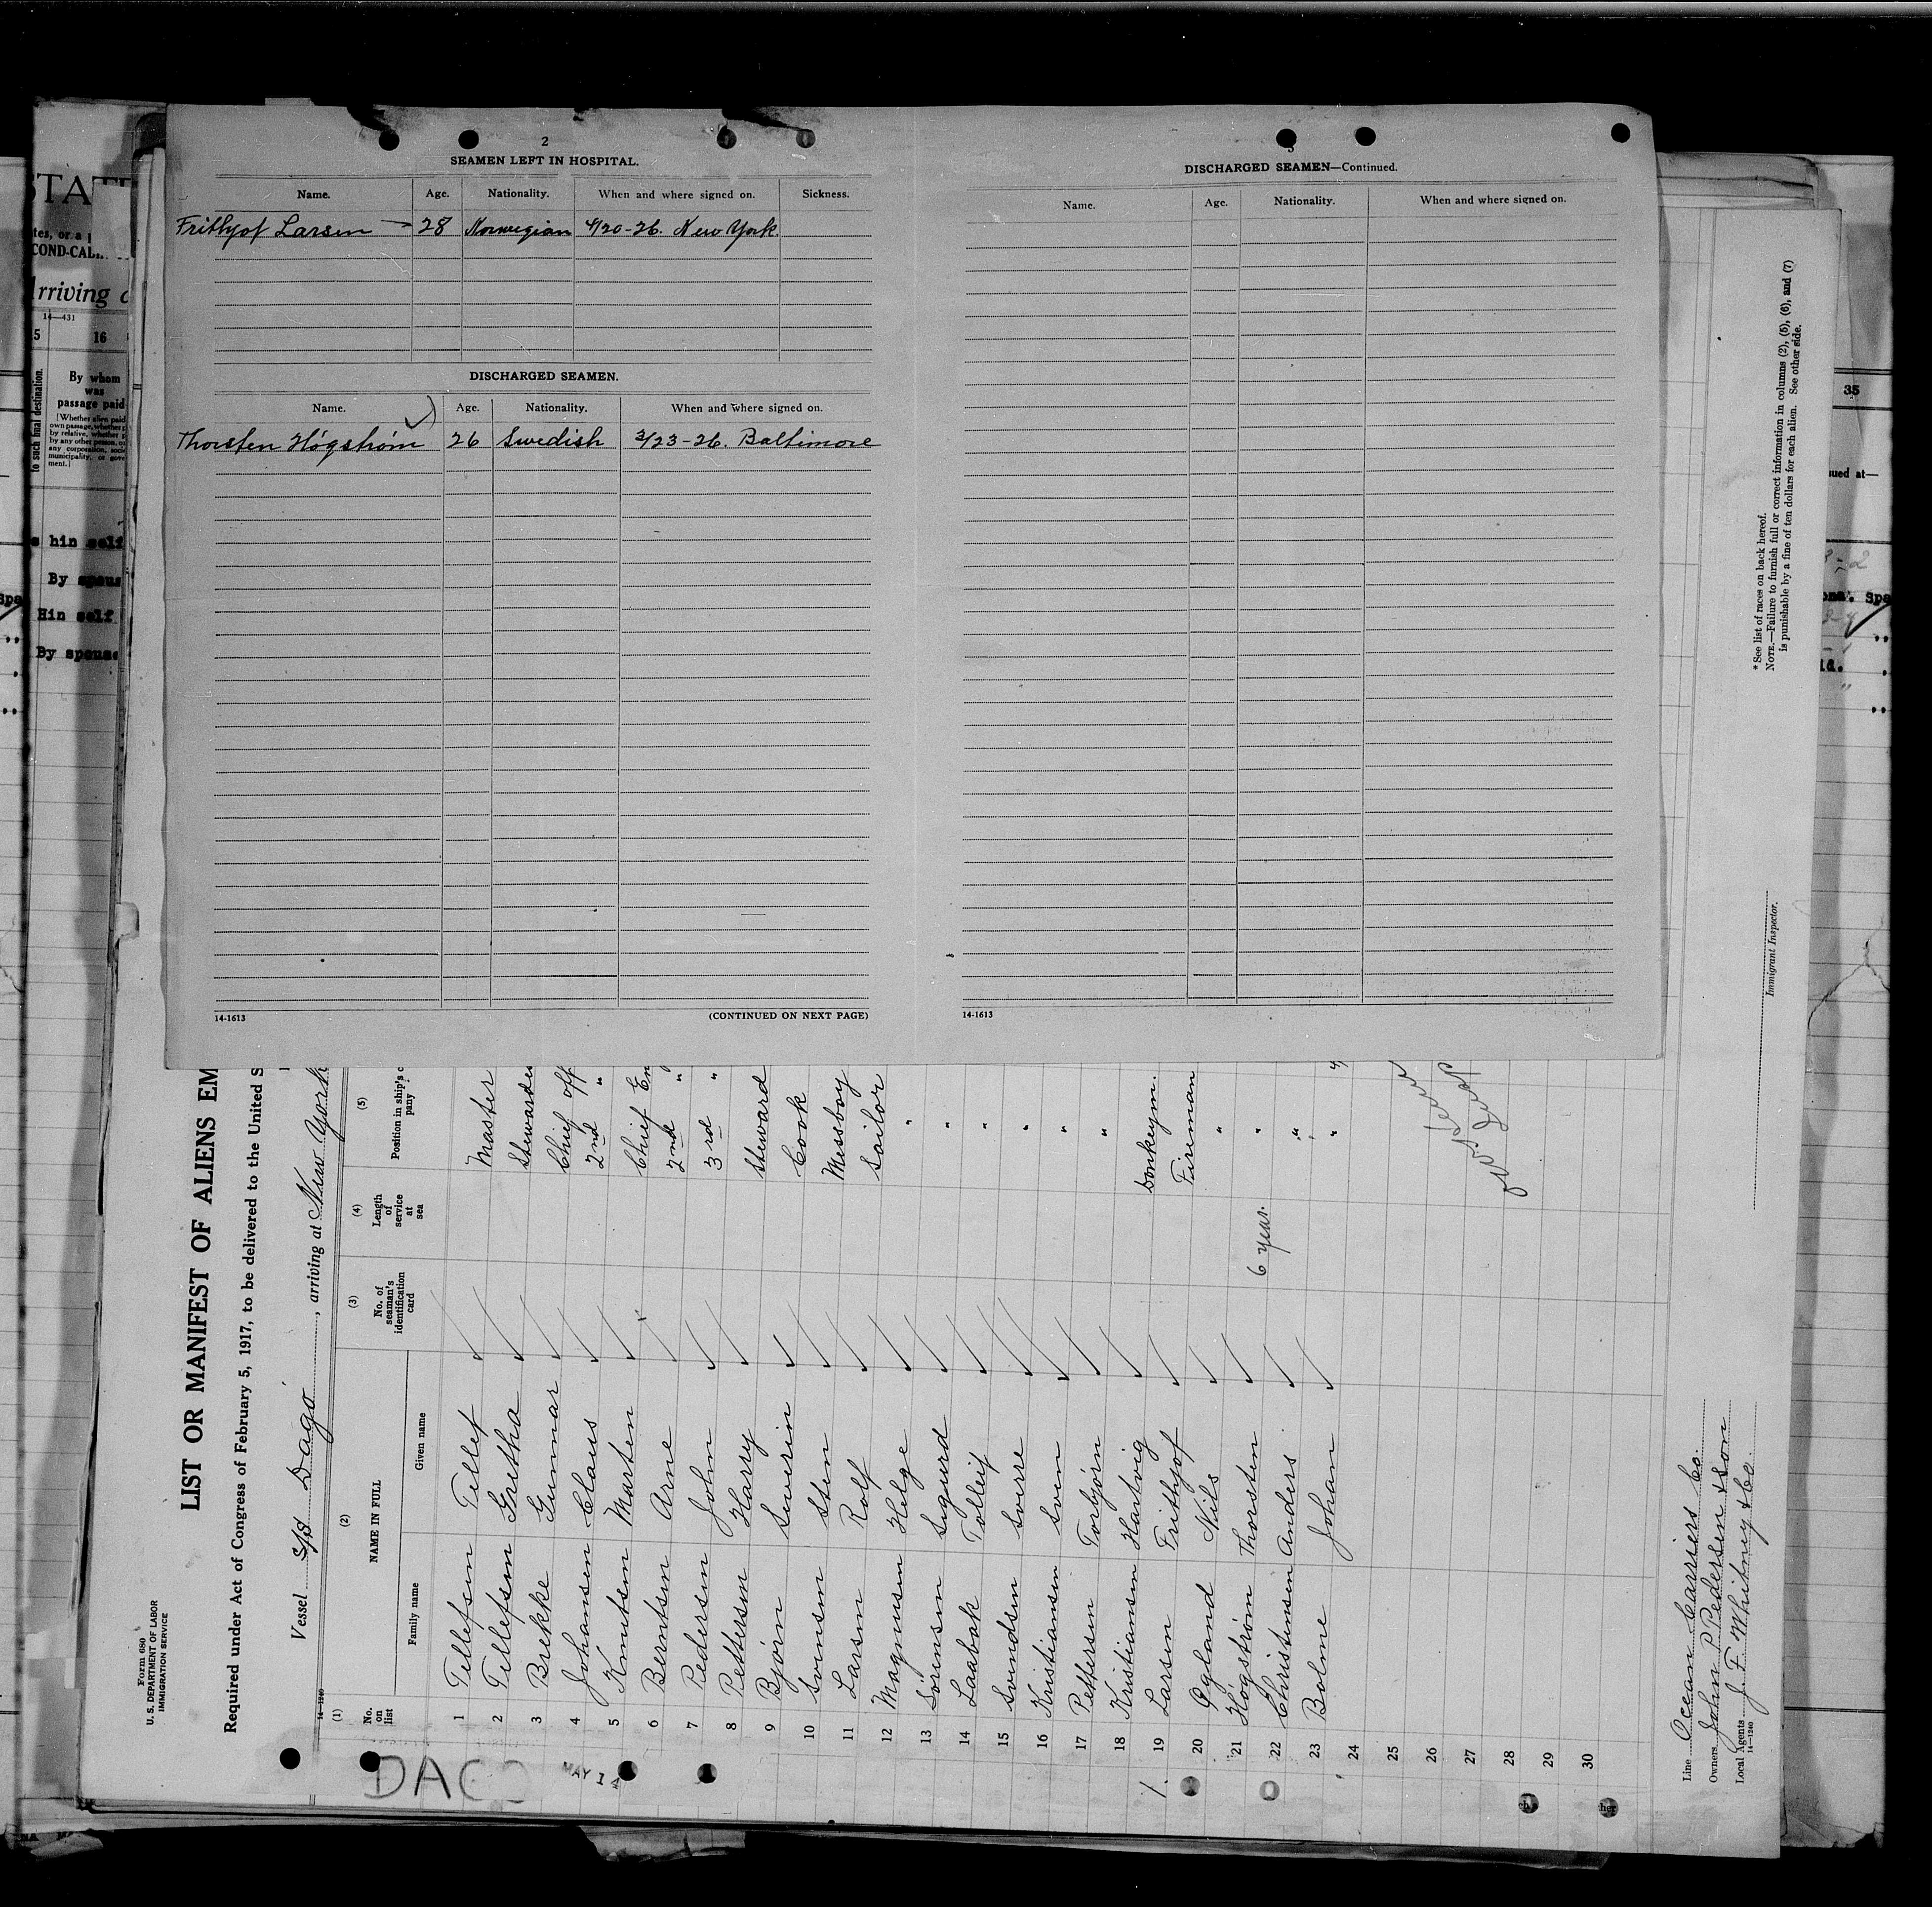 2
SEAMEN LEFT IN HOSPITAL.
Name. Age. Nationality. When and where signed on. Sickness.
Frithjof Larsen 28 Norwegian 4/20-26. New York.
DISCHARGED SEAMEN.
Name. Age. Nationality. When and where signed on.
Thorsten Högström 26 Swedish 3/23-26. Baltimore
14-1613 (CONTINUED ON NEXT PAGE)
3
DISCHARGED SEAMEN—Continued.
Name. Age. Nationality. When and where signed on.
14-1613
Form 680
U. S. DEPARTMENT OF LABOR
IMMIGRATION SERVICE
LIST OR MANIFEST OF ALIENS EM
Required under Act of Congress of February 5, 1917, to be delivered to the United S
Vessel S/S Dagö, arriving at New York
14-1240
(1) (2) (3) (4) (5)
No. on list NAME IN FULL No. of seaman's identification card Length of service at sea Position in ship's c pany
Family name Given name
1 Tellefsen Tellef Master
2 Tellefsen Gretha Stewardes
3 Brekke Gunnar Chief Off
4 Johansen Claus 2nd "
5 Knutsen Marten Chief En
6 Berntsen Arne 2nd "
7 Pedersen John 3rd "
8 Pettersen Harry Steward
9 Bjørn Severin Cook
10 Svensen Sten Messboy
11 Larsen Rolf Sailor
12 Magnussen Helge "
13 Sörensen Sigurd "
14 Laabak Tolleif "
15 Svendsen Sverre "
16 Kristiansen Sven "
17 Pettersen Torbjørn "
18 Kristiansen Hartvig Donkeym.
19 Larsen Frithjof Fireman
20 Øgland Nils "
21 Högström Thorsten 6 year. "
22 Christensen Anders "
23 Bolme Johan "
24
25
26
27
28
29
30
Line Ocean Carriers Co.
Owners John P Pedersen & son
Local Agents J. F. Whitney & Co.
14-1240
Immigrant Inspector.
* See list of races on back hereof.
NOTE.—Failure to furnish full or correct information in columns (2), (5), (6), and (7)
is punishable by a fine of ten dollars for each alien. See other side.
MAY 1
STAT
tes, or a p
COND-CAB
Arriving
14-431
5 16
to such final destination.
By whom
was
passage paid
[Whether alien paid
own passage, whether
by relative, whether
by any other person, or
any corporation, soci
municipality, or gove
ment.]
hin self
By spous
Hin self
By spouse
35
sued at—
Spa